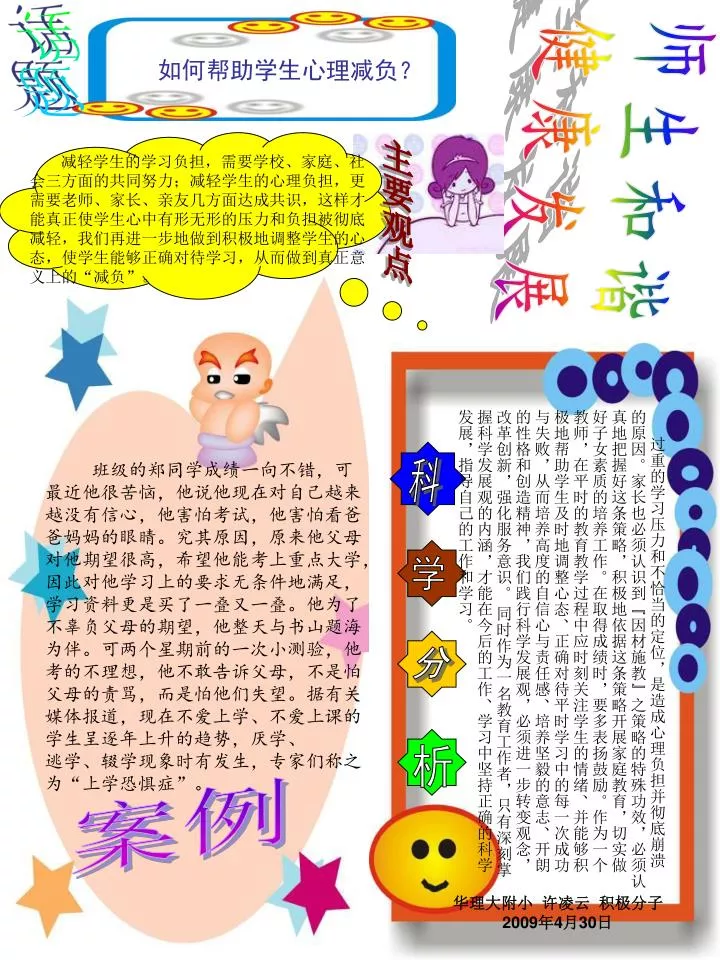 话题
如何帮助学生心理减负？
师生和谐
健康发展
主要观点
减轻学生的学习负担，需要学校、家庭、社
会三方面的共同努力；减轻学生的心理负担，更
需要老师、家长、亲友几方面达成共识，这样才
能真正使学生心中有形无形的压力和负担被彻底
减轻，我们再进一步地做到积极地调整学生的心
态，使学生能够正确对待学习，从而做到真正意
义上的“减负”。
班级的郑同学成绩一向不错，可
最近他很苦恼，他说他现在对自己越来
越没有信心，他害怕考试，他害怕看爸
爸妈妈的眼睛。究其原因，原来他父母
对他期望很高，希望他能考上重点大学，
因此对他学习上的要求无条件地满足，
学习资料更是买了一叠又一叠。他为了
不辜负父母的期望，他整天与书山题海
为伴。可两个星期前的一次小测验，他
考的不理想，他不敢告诉父母，不是怕
父母的责骂，而是怕他们失望。据有关
媒体报道，现在不爱上学、不爱上课的
学生呈逐年上升的趋势，厌学、
逃学、辍学现象时有发生，专家们称之
为“上学恐惧症”。
案例
科学分析
过重的学习压力和不恰当的定位，是造成心理负担并彻底崩溃
的原因。家长也必须认识到『因材施教』之策略的特殊功效，必须认
真地把握好这条策略，积极地依据这条策略开展家庭教育，切实做
好子女素质的培养工作。在取得成绩时，要多表扬鼓励。 作为一个
教师，在平时的教育教学过程中应时刻关注学生的情绪、并能够积
极地帮助学生及时地调整心态、正确对待平时学习中的每一次成功
与失败，从而培养高度的自信心与责任感、培养坚毅的意志、开朗
的性格和创造精神，我们践行科学发展观，必须进一步转变观念，
改革创新，强化服务意识。 同时作为一名教育工作者，只有深刻掌
握科学发展观的内涵，才能在今后的工作、学习中坚持正确的科学
发展，指导自己的工作和学习。
华理大附小 许凌云 积极分子
2009年4月30日